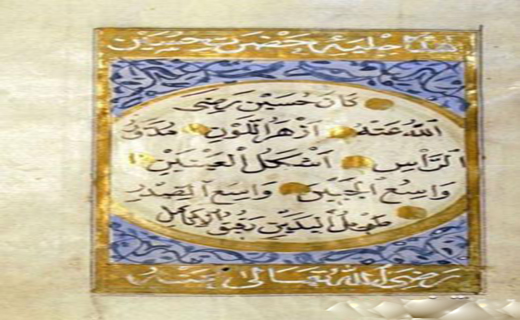 هذا حلية حضرت حسين
كان حسين رضى
الله عنه ازهر اللون مدور
الرأس اشكل العينين
واسع الجبين واسع الصدر
طويل اليدين رقيق الانامل
رضى الله تعالى عنه